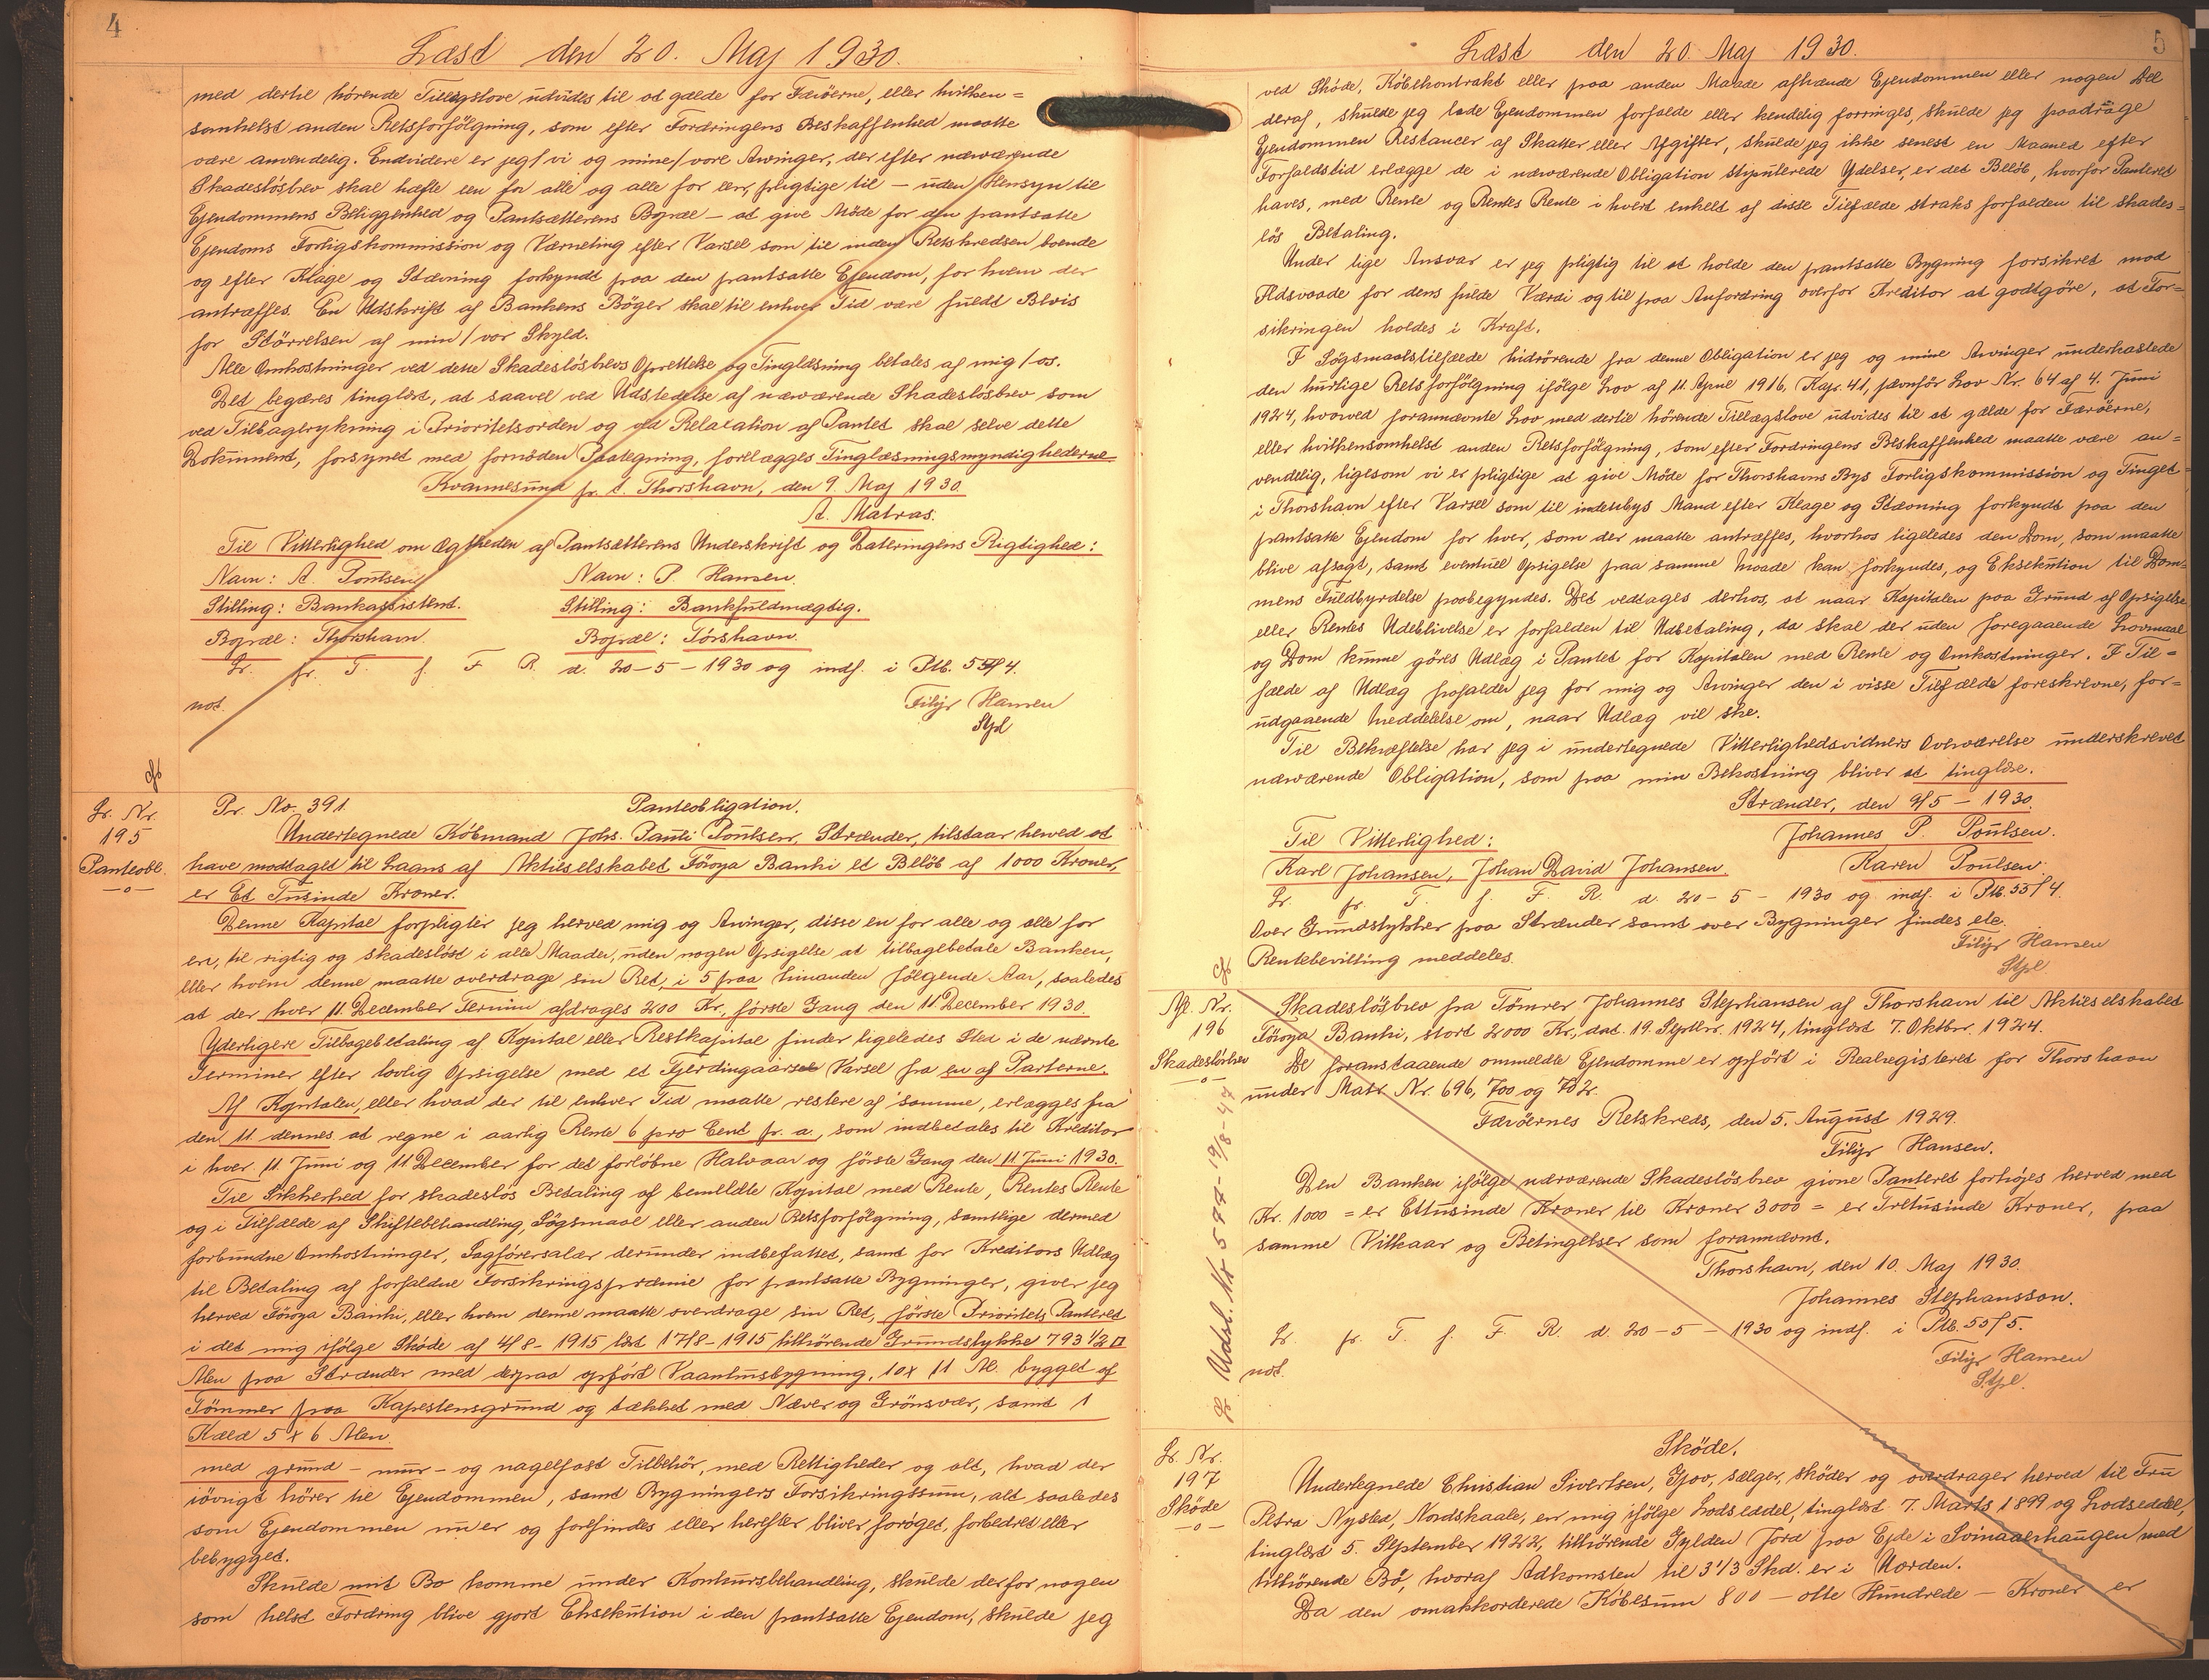 4
Læst den 20. Maj 1930.
med dertil hörende Tillægslove udvides til at gælde for Færöerne, eller hvilken=
somhelst anden Retsforfölgning, som efter Fordringens Beskaffenhed maatte
være anvendelig. Endvidere er jeg/vi og mine/vore Arvinger, der efter nærværende
Skadeslösbrev skal hæfte een for alle og alle for een, pligtige til – uden Hensyn til
Ejendommens Beliggenhed og Pantsætterens Bopæl – at give Möde for den pantsatte
Ejendoms Forligskommission og Værneting efter Varsel som til inden Retskredsen boende
og efter Klage og Stævning forkyndt paa den pantsatte Ejendom, for hvem der
antræffes. En Udskrift af Bankens Böger skal til enhver Tid være fuldt Bevis
for Störrelsen af min/vor Skyld.
Alle Omkostninger ved dette Skadeslösbrevs Oprettelse og Tinglæsning betales af mig/os.
Det begæres tinglæst, at saavel ved Udstedelse af nærværende Skadeslösbrev som
ved Tilbagerykning i Prioritetsorden og ved Relaxation af Pantet skal selve dette
Dokument, forsynet med fornöden Paategning, forelægges Tinglæsningsmyndighederne.
Kvannesund p. t. Thorshavn, den 9. Maj 1930.
A. Matras.
Til Vitterlighed om Ægtheden af Pantsætterens Underskrift og Dateringens Rigtighed:
Navn: A. Poulsen Navn: P. Hansen.
Stilling: Bankassistent. Stilling: Bankfuldmægtig.
Bopæl: Thorshavn. Bopæl: Tórshavn.
Lr. pr. T. f. F. R. d. 20-5-1930 og indf. i Ptb. 55/4.
not. Filip Hansen
Stpl
Lr. Nr.
195
Panteobl.
-o-
Pr. No. 391. Panteobligation.
Undertegnede Köbmand Johs. Pauli Poulsen, Strænder, tilstaar herved at
have modtaget til Laans af Aktieselskabet Föroya Banki et Belöb af 1000 Kroner,
er Et Tusinde Kroner.
Denne Kapital forpligter jeg herved mig og Arvinger, disse en for alle og alle for
en, til rigtig og skadeslöst i alle Maader, uden nogen Opsigelse at tilbagebetale Banken,
eller hvem denne maatte overdrage sin Ret, i 5 paa hinanden fölgende Aar, saaledes
at der hver 11. December Termin afdrages 200 Kr., förste Gang den 11. December 1930.
Yderligere Tilbagebetaling af Kapital eller Restkapital finder ligeledes Sted i de nævnte
Terminer efter lovlig Opsigelse med et Fjerdingaars Varsel fra en af Parterne.
Af Kapitalen, eller hvad der til enhver Tid maatte restere af samme, erlægges fra
den 11. dennes at regne i aarlig Rente 6 pro Cent p. a., som indbetales til Kreditor
i hver 11. Juni og 11 December for det forlöbne Halvaar og förste Gang den 11. Juni 1930.
Til Sikkerhed for skadeslös Betaling af bemeldte Kapital med Rente, Rentes Rente
og i Tilfælde af Skiftebehandling, Sögsmaal eller anden Retsforfölgning, samtlige dermed
forbundne Omkostninger, Sagförersalær derunder indbefattet, samt for Kreditors Udlæg
til Betaling af forfaldne Forsikringspræmie for pantsatte Bygninger, giver jeg
herved Föroya Banki, eller hvem denne maatte overdrage sin Ret, förste Prioritets Panteret
i det mig ifölge Sköde af 4/8-1915 læst 17/8-1915 tilhörende Grundstykke 793 1/2 □
Alen paa Strænder med derpaa opfört Vaaningsbygning, 10 x 11 Al. bygget af
Tömmer paa Kampestensgrund og tækket med Næver og Grönsvær, samt 1
Hæld 5 x 6 Alen.
med grund – mur – og nagelfast Tilbehör, med Rettigheder og alt, hvad der
iövrigt hörer til Ejendommen, samt Bygningers Forsikringssum, alt saaledes
som Ejendommen nu er og forefindes eller herefter bliver foröget, forbedret eller
bebygget.
Skulde mit Bo komme under Konkursbehandling, skulde der for nogen
som helst Fordring blive gjort Eksekution i den pantsatte Ejendom, skulde jeg
5
Læst den 20. Maj 1930.
ved Sköde, Köbekontrakt eller paa anden Maade afhænde Ejendommen eller nogen Del
deraf, skulde jeg lade Ejendommen forfalde eller kendelig forringes, skulde jeg paadrage
Ejendommen Restancer af Skatter eller Afgifter, skulde jeg ikke senest en Maaned efter
Forfaldstid erlægge de i nærværende Obligation stipulerede Ydelser, er det Belöb, hvorfor Panteret
haves, med Rente og Rentes Rente i hvert enkelt af disse Tilfælde straks forfalden til skades=
lös Betaling.
Under lige Ansvar er jeg pligtig til at holde den pantsatte Bygning forsikret mod
Ildsvaade for dens fulde Værdi og til paa Anfordring overfor Kreditor at godtgöre, at For=
sikringen holdes i Kraft.
I Sögsmaalstilfælde hidrörende fra denne Obligation er jeg og mine Arvinger underkastede
den hurtige Retsforfölgning ifölge Lov af 11. April 1916, Kap. 41, jævnför Lov Nr. 64 af 4. Juni
1924, hvorved forannævnte Lov med dertil hörende Tillægslove udvides til at gælde for Færöerne,
eller hvilkensomhelst anden Retsforfölgning, som efter Fordringens Beskaffenhed maatte være an=
vendelig, ligesom vi er pligtige at give Möde for Thorshavns Bys Forligskommission og Tinget
i Thorshavn efter Varsel som til indenbys Mand efter Klage og Stævning forkyndt paa den
pantsatte Ejendom for hver, som der maatte antræffes, hvorhos ligeledes den Dom, som maatte
blive afsagt, samt eventuel Opsigelse paa samme Maade kan forkyndes, og Eksekution til Dom=
mens Fuldbyrdelse paabegyndes. Det vedtages derhos, at naar Kapitalen paa Grund af Opsigelse
eller Rentes Udeblivelse er forfalden til Udbetaling, da skal der uden foregaaende Lovmaal
og Dom kunne göres Udlæg i Pantet for Kapitalen med Rente og Omkostninger. I Til=
fælde af Udlæg frafalder jeg for mig og Arvinger den i visse Tilfælde foreskrevne, for=
udgaaende Meddelelse om, naar Udlæg vil ske.
Til Bekræftelse har jeg i undertegnede Vitterlighedsvidners Overværelse underskrevet
nærværende Obligation, som paa min Bekostning bliver at tinglæse.
Strænder, den 9/5 – 1930.
Til Vitterlighed: Johannes P. Poulsen.
Karl Johansen, Johan David Johansen. Karen Poulsen.
Lr. pr. T. f. F. R. d. 20-5-1930 og indf. i Ptb. 55/4.
Over Grundstykker paa Strænder samt over Bygninger findes etc.
Rentebevilling meddeles. Filip Hansen
Stpl.
Af. Nr.
196
Skadeslösbrev
-o-
Lr Udsl. Nr 574-19/8-47
Skadeslösbrev fra Tömrer Johannes Stephansen af Thorshavn til Aktieselskabet
Föroya Banki, stort 2000 Kr., dat. 19. Septbr. 1924, tinglæst 7. Oktbr. 1924.
De foranstaaende ommeldte Ejendomme er opfört i Realregisteret for Thorshavn
under Matr. Nr. 696, 700 og 702.
Færöernes Retskreds, den 5. August 1929.
Filip Hansen.
Den Banken ifölge nærværende Skadeslösbrev givne Panteret forhöjes herved med
Kr. 1000 = er Ettusinde Kroner til Kroner 3000 = er Tretusinde Kroner, paa
samme Vilkaar og Betingelser som forannævnt.
Thorshavn, den 10. Maj 1930.
Johannes Stephansson.
Lr. pr. T. f. F. R. d. 20-5-1930 og indf. i Ptb. 55/5.
not. Filip Hansen
Stpl.
Lr. Nr.
197
Sköde
-o-
Sköde.
Undertegnede Christian Sivertsen, Gjov, sælger, sköder og overdrager herved til Fru
Petra Nysted, Nordskaale, en mig ifölge Lodseddel, tinglæst 7. Marts 1899 og Lodseddel,
tinglæst 5. September 1922, tilhörende Gylden Jord paa Ejde i Svinaaerhaugen med
tilhörende Bö, hvoraf Adkomsten til 3 1/3 Skd. er i Uorden.
Da den omakkorderede Köbesum 800 – otte Hundrede – Kroner er